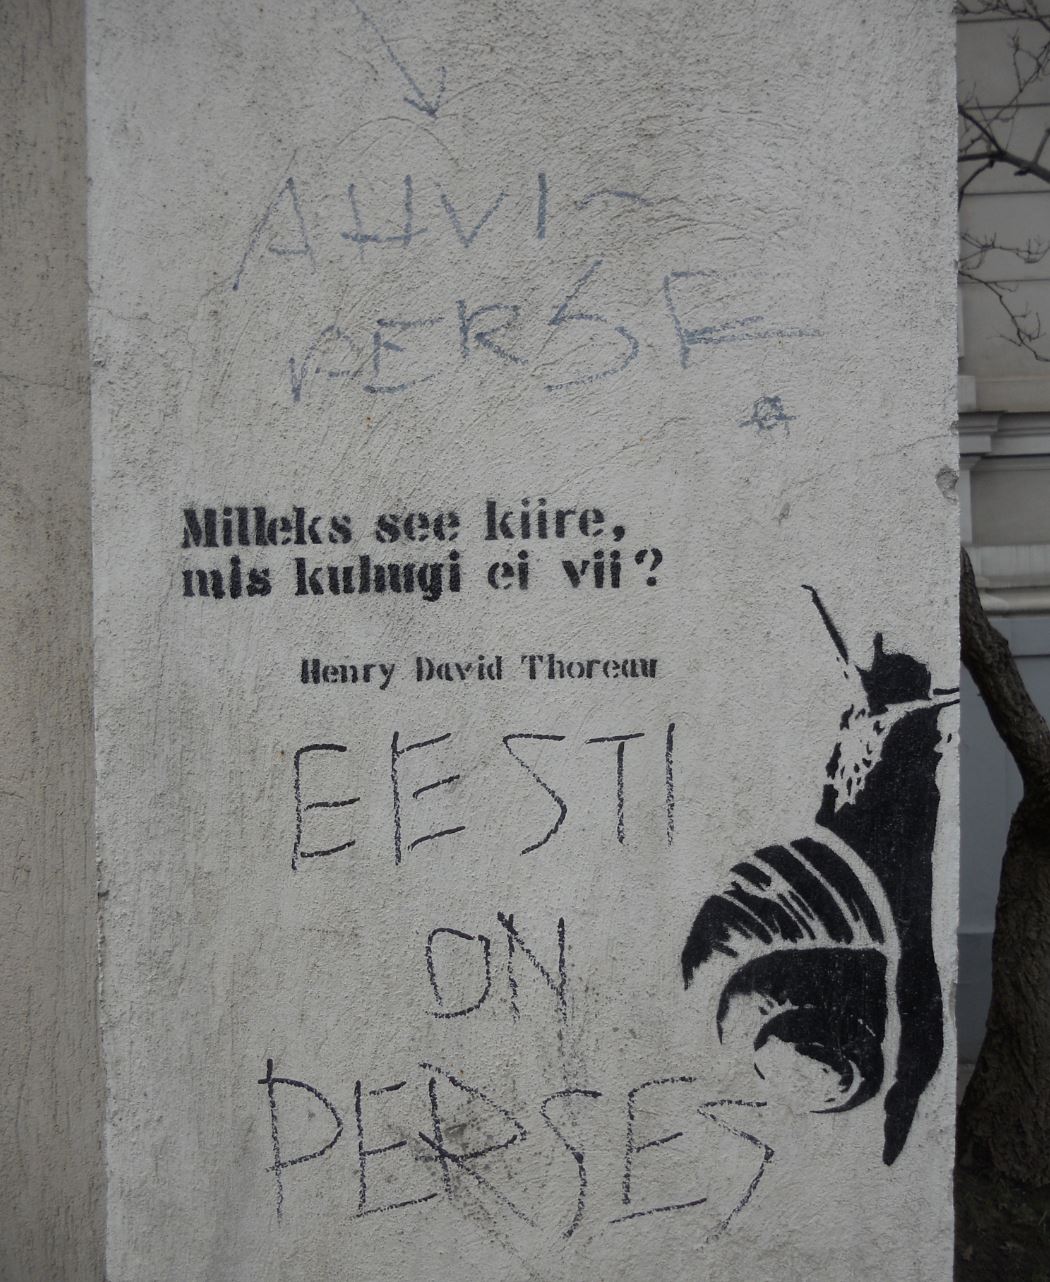 AHVI-
PERSE
Milleks see kiire,
mis kuhugi ei vii?
Henry David Thoreau
EESTI
ON
PERSES